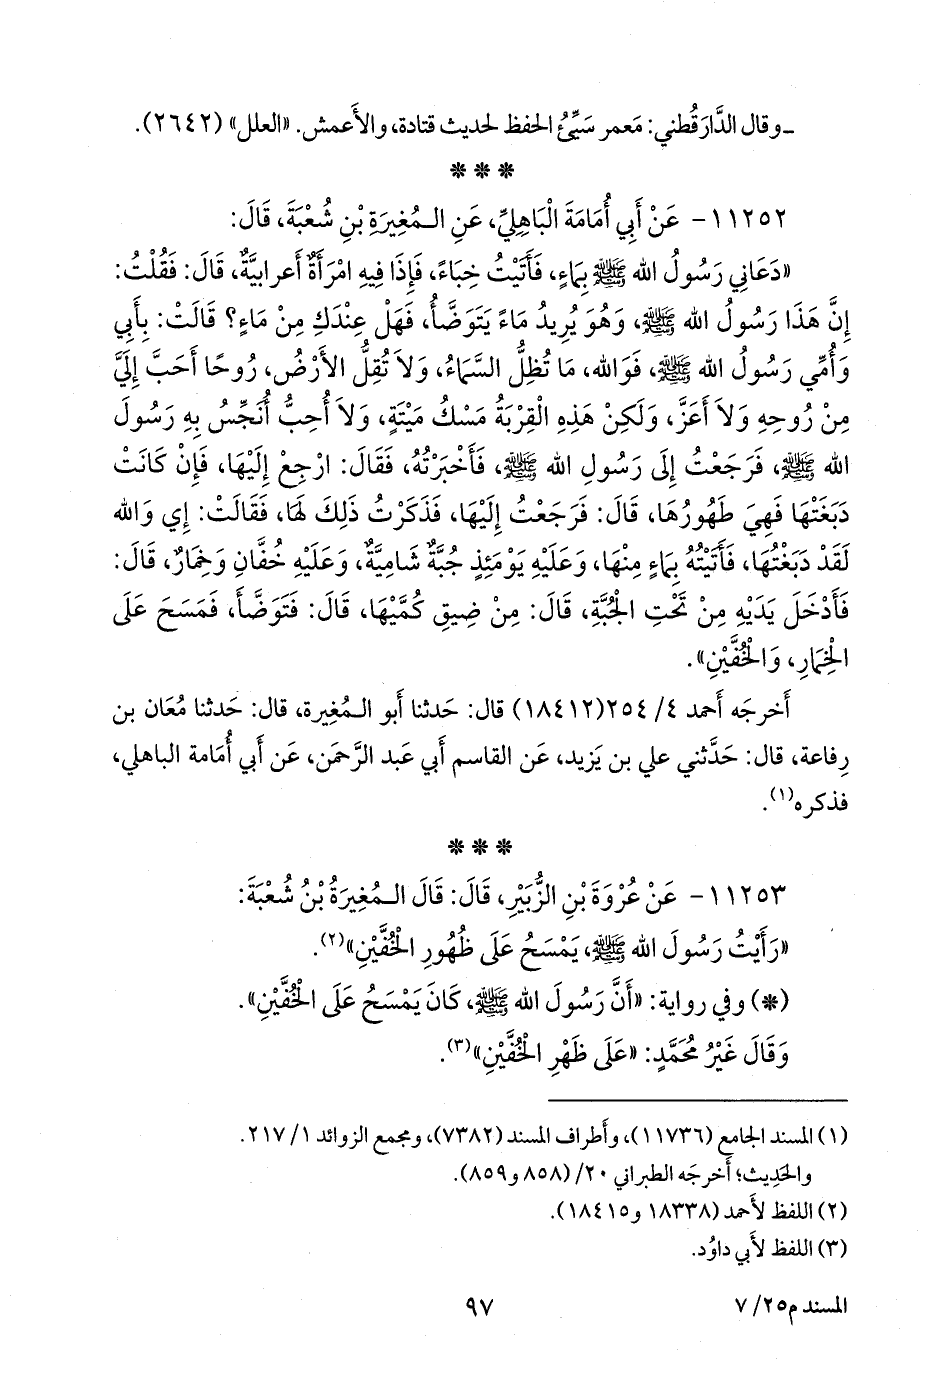 ـ وقال الدَّارَقُطني: مَعمر سَيِّئُ الحفظ لحديث قتادة، والأَعمش. «العلل» (٢٦٤٢).
***
١١٢٥٢ - عَنْ أَبِي أُمَامَةَ الْبَاهِلِيِّ، عَنِ الـمُغِيرَةِ بْنِ شُعْبَةَ، قَالَ:
«دَعَانِي رَسُولُ الله ﷺ بِمَاءٍ، فَأَتَيْتُ خِبَاءً، فَإِذَا فِيهِ امْرَأَةٌ أَعرابيَّةٌ، قَالَ: فَقُلْتُ:
إِنَّ هَذَا رَسُولُ الله ﷺ، وَهُوَ يُرِيدُ مَاءً يَتَوَضَّأُ، فَهَلْ عِنْدَكِ مِنْ مَاءٍ؟ قَالَتْ: بِأَبِي
وَأُمِّي رَسُولُ الله ﷺ، فَوَالله، مَا تُظِلُّ السَّمَاءُ، وَلاَ تُقِلُّ الأَرْضُ، رُوحًا أَحَبَّ إِلَيَّ
مِنْ رُوحِهِ وَلاَ أَعَزَّ، وَلَكِنْ هَذِهِ الْقِرْبَةُ مَسْكُ مَيْتَةٍ، وَلاَ أُحِبُّ أُنَجِّسُ بِهِ رَسُولَ
الله ﷺ، فَرَجَعْتُ إِلَى رَسُولِ الله ﷺ، فَأَخْبَرْتُهُ، فَقَالَ: ارْجِعْ إِلَيْهَا، فَإِنْ كَانَتْ
دَبَغَتْهَا فَهِيَ طَهُورُهَا، قَالَ: فَرَجَعْتُ إِلَيْهَا، فَذَكَرْتُ ذَلِكَ لَهَا، فَقَالَتْ: إِي وَالله
لَقَدْ دَبَغْتُهَا، فَأَتَيْتُهُ بِمَاءٍ مِنْهَا، وَعَلَيْهِ يَوْمَئِذٍ جُبَّةٌ شَامِيَّةٌ، وَعَلَيْهِ خُفَّانِ وَخِمَارٌ، قَالَ:
فَأَدْخَلَ يَدَيْهِ مِنْ تَحْتِ الْجُبَّةِ، قَالَ: مِنْ ضِيقِ كُمَّيْهَا، قَالَ: فَتَوَضَّأَ، فَمَسَحَ عَلَى
الْخِمَارِ، وَالْخُفَّيْنِ».
أَخرجَه أَحمد ٤/ ٢٥٤(١٨٤١٢) قال: حَدثنا أَبو الـمُغِيرة، قال: حَدثنا مُعَان بن
رِفاعة، قال: حَدَّثني علي بن يَزيد، عَن القاسم أَبي عَبد الرَّحمَن، عَن أَبي أُمَامة الباهلي،
فذكره(١).
***
١١٢٥٣ - عَنْ عُرْوَةَ بْنِ الزُّبَيْرِ، قَالَ: قَالَ الـمُغِيرَةُ بْنُ شُعْبَةَ:
«رَأَيْتُ رَسُولَ الله ﷺ، يَمْسَحُ عَلَى ظُهُورِ الْخُفَّيْنِ»(٢).
(*) وفي رواية: «أَنَّ رَسُولَ الله ﷺ، كَانَ يَمْسَحُ عَلَى الْخُفَّيْنِ».
وَقَالَ غَيْرُ مُحَمَّدٍ: «عَلَى ظَهْرِ الْخُفَّيْنِ»(٣).
(١) المسند الجامع (١١٧٣٦)، وأَطراف المسند (٧٣٨٢)، ومجمع الزوائد ١/ ٢١٧.
والحَدِيث؛ أَخرجَه الطبراني ٢٠/ (٨٥٨ و٨٥٩).
(٢) اللفظ لأَحمد (١٨٣٣٨ و١٨٤١٥).
(٣) اللفظ لأَبي داوُد.
المسند م٢٥/ ٧
٩٧